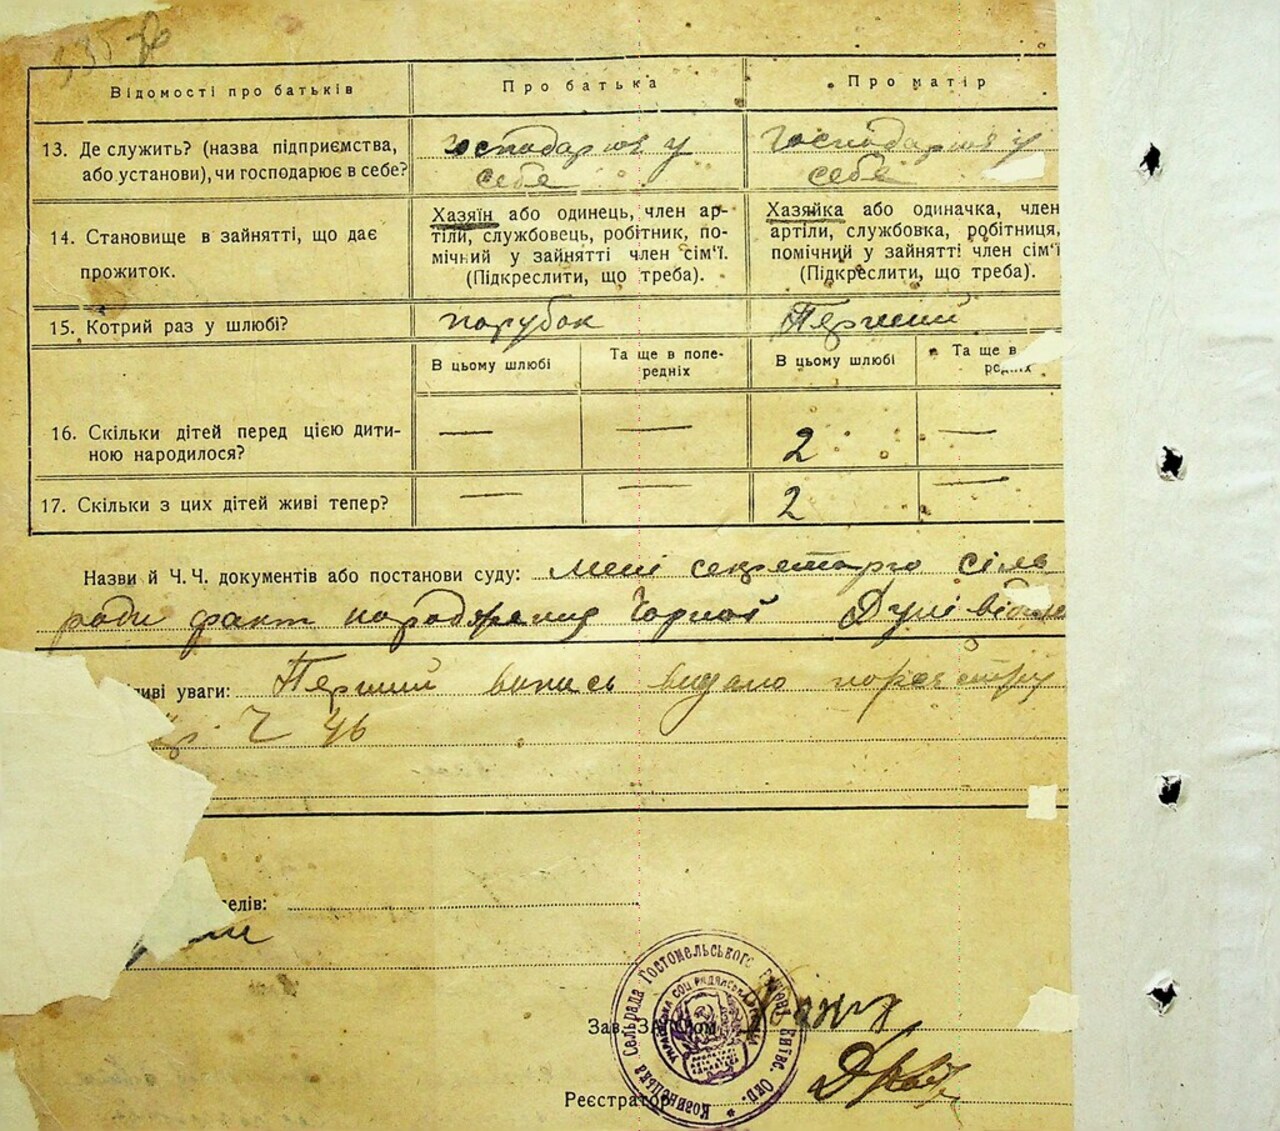 Відомості про батьків
Про батька
Про матір
13. Де служить? (назва підприємства, або установи), чи господарює в себе?
господарює у
себе
господарює у
себе
14. Становище в зайнятті, що дає
прожиток.
Хазяїн або одинець, член ар-
тіли, службовець, робітник, по-
мічний у зайнятті член сім'ї.
(Підкреслити, що треба).
Хазяйка або одиначка, член
артіли, службовка, робітниця,
помічний у зайнятті член сім'ї
(Підкреслити, що треба).
15. Котрий раз у шлюбі?
парубок
Перший
В цьому шлюбі
Та ще в попе-
редніх
В цьому шлюбі
Та ще в
редніх
16. Скільки дітей перед цією дити-
ною народилося?
— — 2 —
17. Скільки з цих дітей живі тепер?
— — 2 —
Назви й Ч. Ч. документів або постанови суду: мені секретарю сіль
ради факт народження Чорної
иві уваги: Перший випись видано
Ч 46
елів:
Козинецька Сельрада Гостомельського району Київс. Окр.
Зав. ЗАГСом
Реєстратор